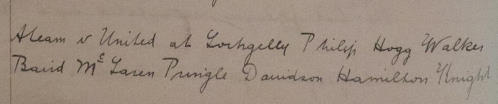 A team v United at Lochgelly Philip Hogg Walker
Baird McLaren Pringle Davidson Hamilton & Knight